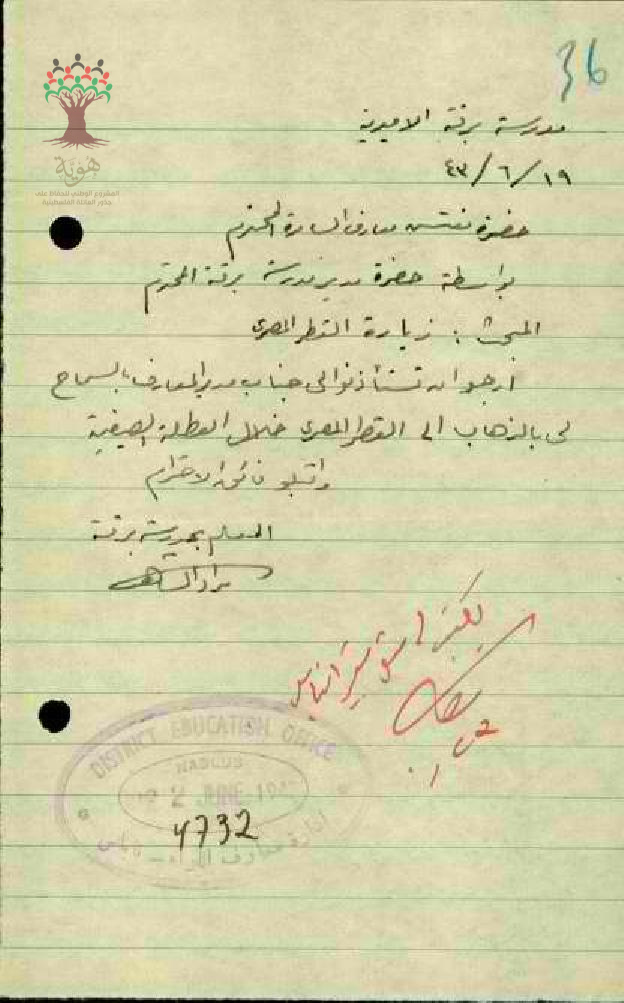 36
هوية
المشروع الوطني للحفاظ على
جذور العائلة الفلسطينية
مدرسة برقة الاميرية
١٩/٦/٤٣
حضرة مفتش معارف السامرة المحترم
بواسطة حضرة مدير مدرسة برقة المحترم
المبحث : زيارة القطر المصري
ارجو ان تستأذنوا لي جناب مدير المعارف بالسماح
لي بالذهاب الى القطر المصري خلال العطلة الصيفية
واقبلوا فائق الاحترام
المعلم بمدرسة برقة
DISTRICT EDUCATION OFFICE
NABLUS
2 JUNE
ادارة معارف اللواء – نابلس
4732